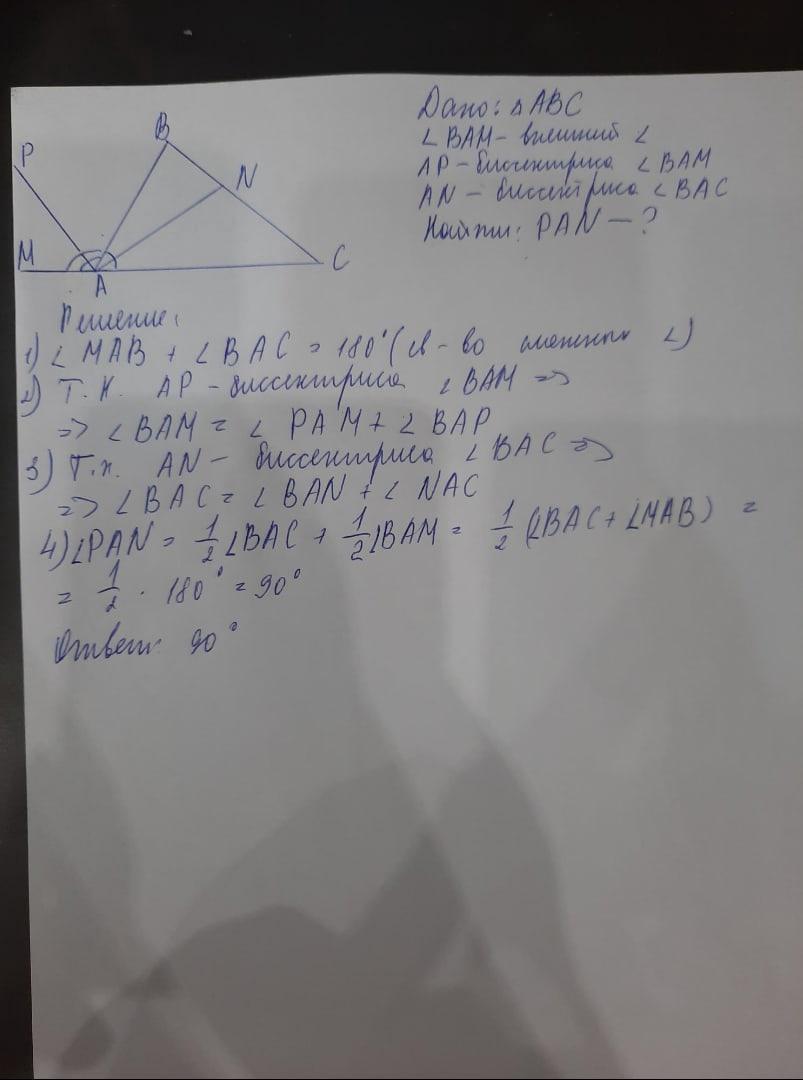 B
P
N
M
C
A
Дано: △ABC
∠BAM - внешний ∠
AP - биссектриса ∠BAM
AN - биссектриса ∠BAC
Найти: PAN - ?
Решение:
1) ∠MAB + ∠BAC = 180° (св-во смежных ∠)
2) Т.к. AP - биссектриса ∠BAM =>
=> ∠BAM = ∠PAM + ∠BAP
3) Т.к. AN - биссектриса ∠BAC =>
=> ∠BAC = ∠BAN + ∠NAC
4) ∠PAN = 1/2 ∠BAC + 1/2 ∠BAM = 1/2 (∠BAC + ∠MAB) =
= 1/2 · 180° = 90°
Ответ: 90°